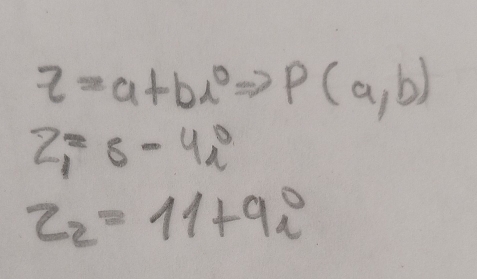 z = a+bi => P(a,b)
z₁ = 8 - 4i
z₂ = 11+9i